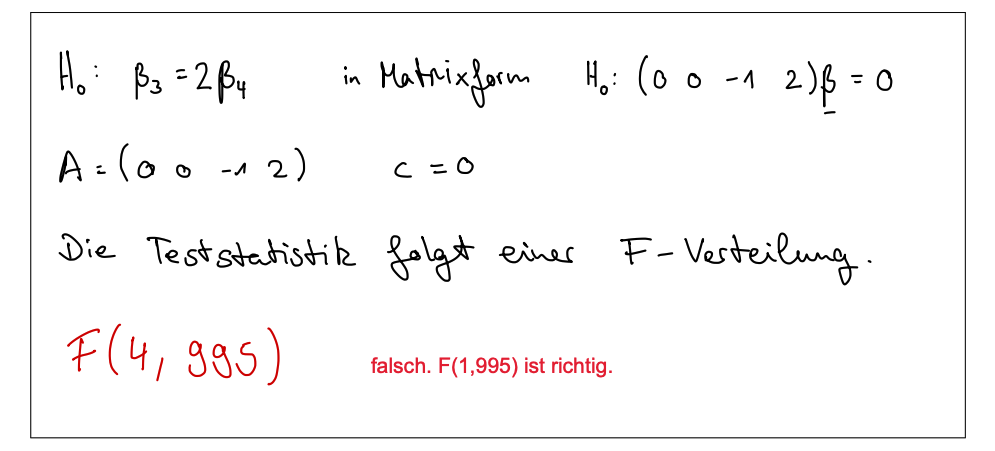 H₀: β₃ = 2β₄ in Matrixform H₀: (0 0 -1 2)β = 0
A = (0 0 -1 2) c = 0
Die Teststatistik folgt einer F-Verteilung.
F(4, 995) falsch. F(1,995) ist richtig.